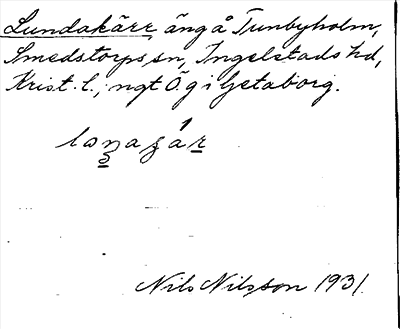 Lundakärr, äng å Tunbyholm,
Smedstorps sn, Ingelstads hd,
Krist. l., ngt Ö. g i Getaborg.
Nils Nilsson 1931